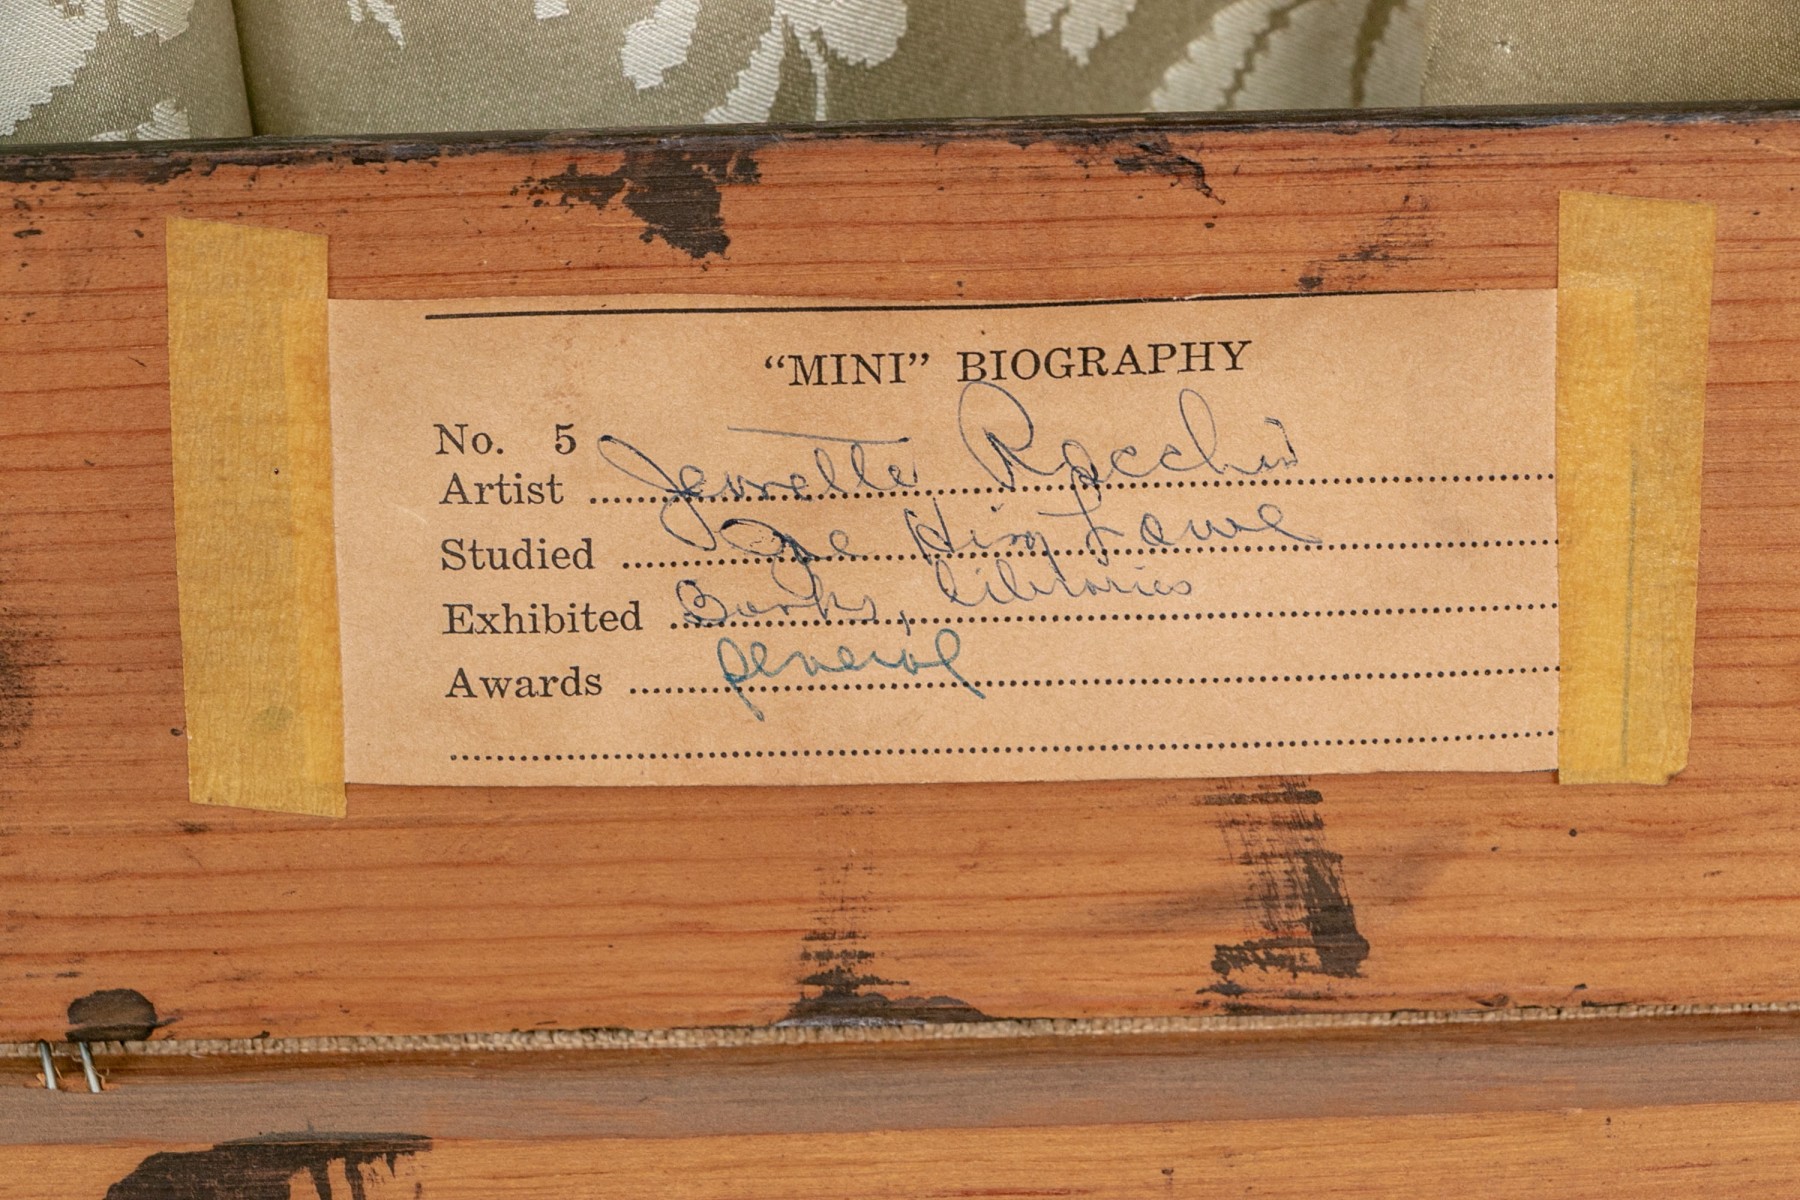 "MINI" BIOGRAPHY
No. 5
Artist Jennette Rocchi
Studied Joe King Lowe
Exhibited Banks, libraries
Awards general